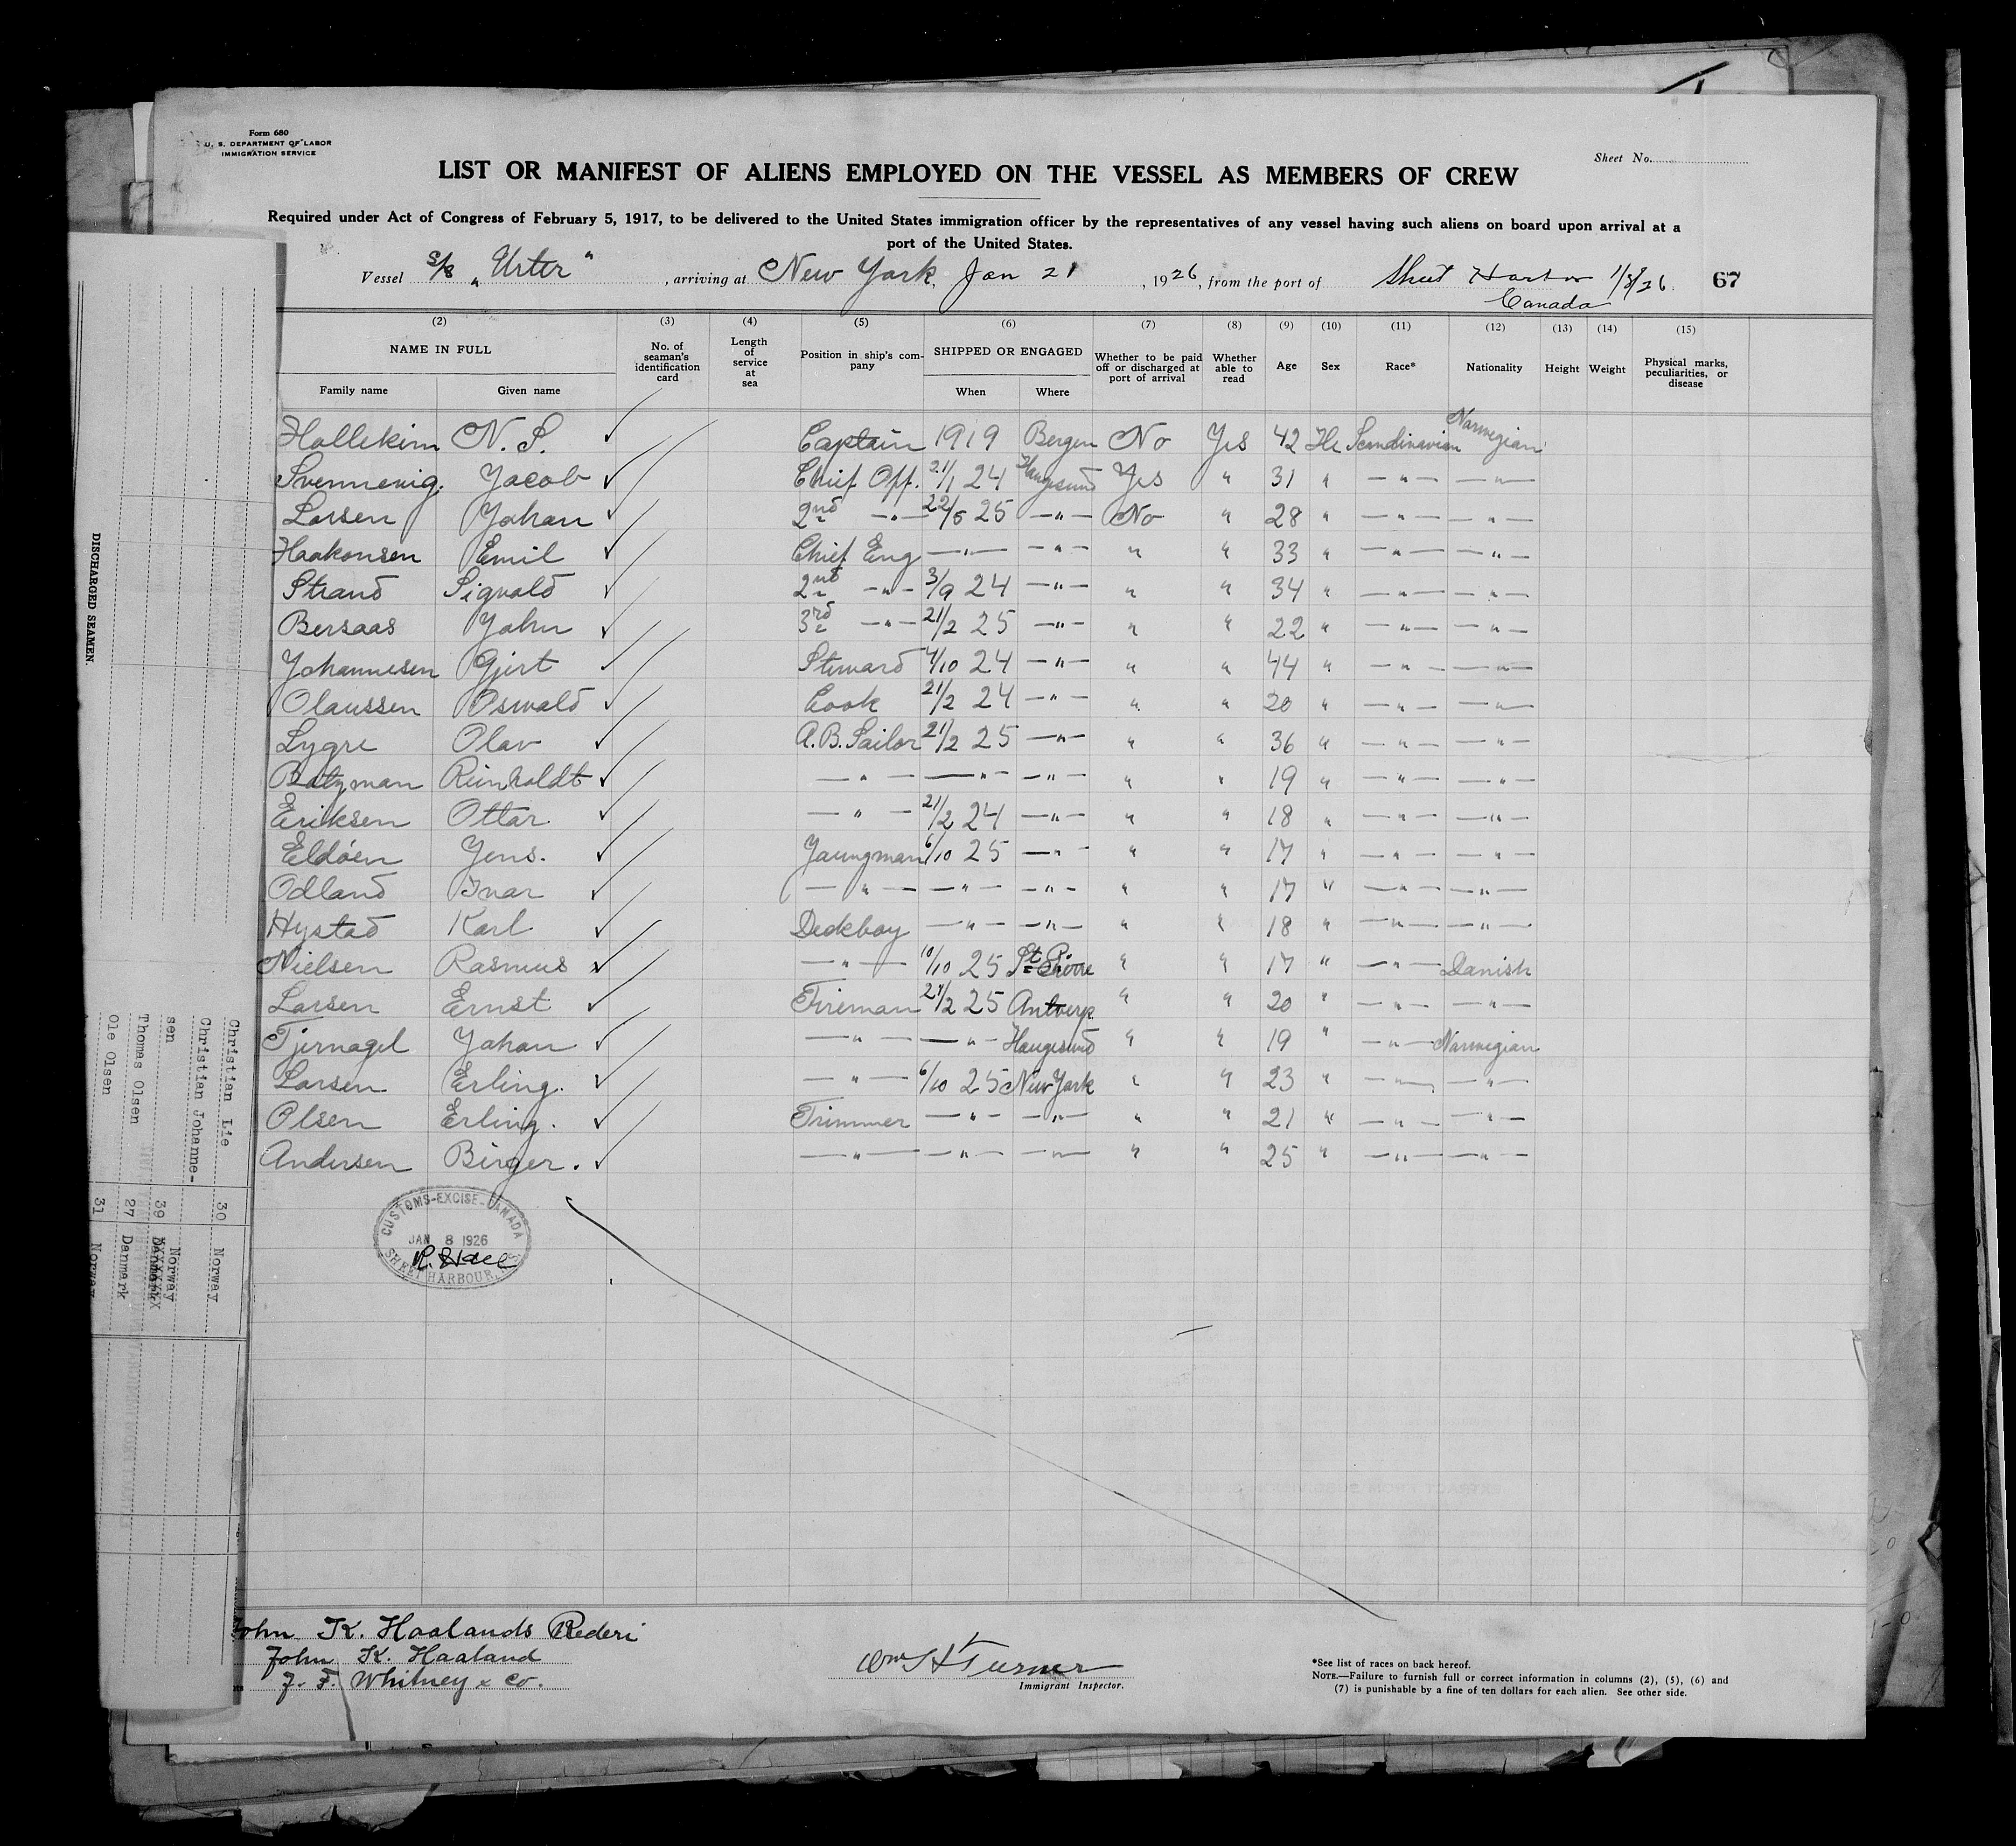 Form 680
U. S. DEPARTMENT OF LABOR
IMMIGRATION SERVICE
Sheet No.
LIST OR MANIFEST OF ALIENS EMPLOYED ON THE VESSEL AS MEMBERS OF CREW
Required under Act of Congress of February 5, 1917, to be delivered to the United States immigration officer by the representatives of any vessel having such aliens on board upon arrival at a
port of the United States.
Vessel S/S "Urter", arriving at New York, Jan 21, 1926, from the port of Sheet Harbor 1/8/26 67
Canada
(2) (3) (4) (5) (6) (7) (8) (9) (10) (11) (12) (13) (14) (15)
NAME IN FULL No. of seaman's identification card Length of service at sea Position in ship's company SHIPPED OR ENGAGED Whether to be paid off or discharged at port of arrival Whether able to read Age Sex Race* Nationality Height Weight Physical marks, peculiarities, or disease
Family name Given name When Where
Hallekim N. S. ✓ Captain 1919 Bergen No Yes 42 He Scandinavian Norwegian
Svennevig. Jacob ✓ Chief Off. 21/1 24 Haugesund Yes " 31 " —"— —"—
Larsen Johan ✓ 2nd —"— 22/5 25 —"— No " 28 " —"— —"—
Haakonsen Emil ✓ Chief Eng —"— —"— " " 33 " —"— —"—
Strand Sigvald ✓ 2nd —"— 3/9 24 —"— " " 34 " —"— —"—
Bersaas John ✓ 3rd —"— 21/2 25 —"— " " 22 " —"— —"—
Johannesen Gjert ✓ Steward 4/10 24 —"— " " 44 " —"— —"—
Olaussen Oswald ✓ Cook 21/2 24 —"— " " 20 " —"— —"—
Lygre Olav ✓ A.B. Sailor 21/2 25 —"— " " 36 " —"— —"—
Batzman Reinholdt ✓ —"— —"— —"— " " 19 " —"— —"—
Eriksen Ottar ✓ —"— 21/2 24 —"— " " 18 " —"— —"—
Eldøen Jens. ✓ Youngman 6/10 25 —"— " " 17 " —"— —"—
Odland Ivar ✓ —"— —"— —"— " " 17 " —"— —"—
Hystad Karl ✓ Deckboy —"— —"— " " 18 " —"— —"—
Nielsen Rasmus ✓ —"— 10/10 25 St. Pierre " " 17 " —"— Danish
Larsen Ernst ✓ Fireman 27/2 25 Antwerp " " 20 " —"— —"—
Tjernagel Johan ✓ —"— —"— Haugesund " " 19 " —"— Norwegian
Larsen Erling. ✓ —"— 6/10 25 New York " " 23 " —"— —"—
Olsen Erling. ✓ Trimmer —"— —"— " " 21 " —"— —"—
Andersen Birger. ✓ —"— —"— —"— " " 25 " —"— —"—
CUSTOMS-EXCISE-CANADA
JAN 8 1926
SHEET HARBOUR, N.S.
John K. Haalands Rederi
John K. Haaland
J. F. Whitney & Co.
Wm H Turner
Immigrant Inspector.
*See list of races on back hereof.
NOTE.—Failure to furnish full or correct information in columns (2), (5), (6) and
(7) is punishable by a fine of ten dollars for each alien. See other side.
DISCHARGED SEAMEN.
Christian Lie 30 Norway
Christian Johanne-
sen 39 Norway
Thomas Olsen 27 Danmark
Ole Olsen 31 Norway